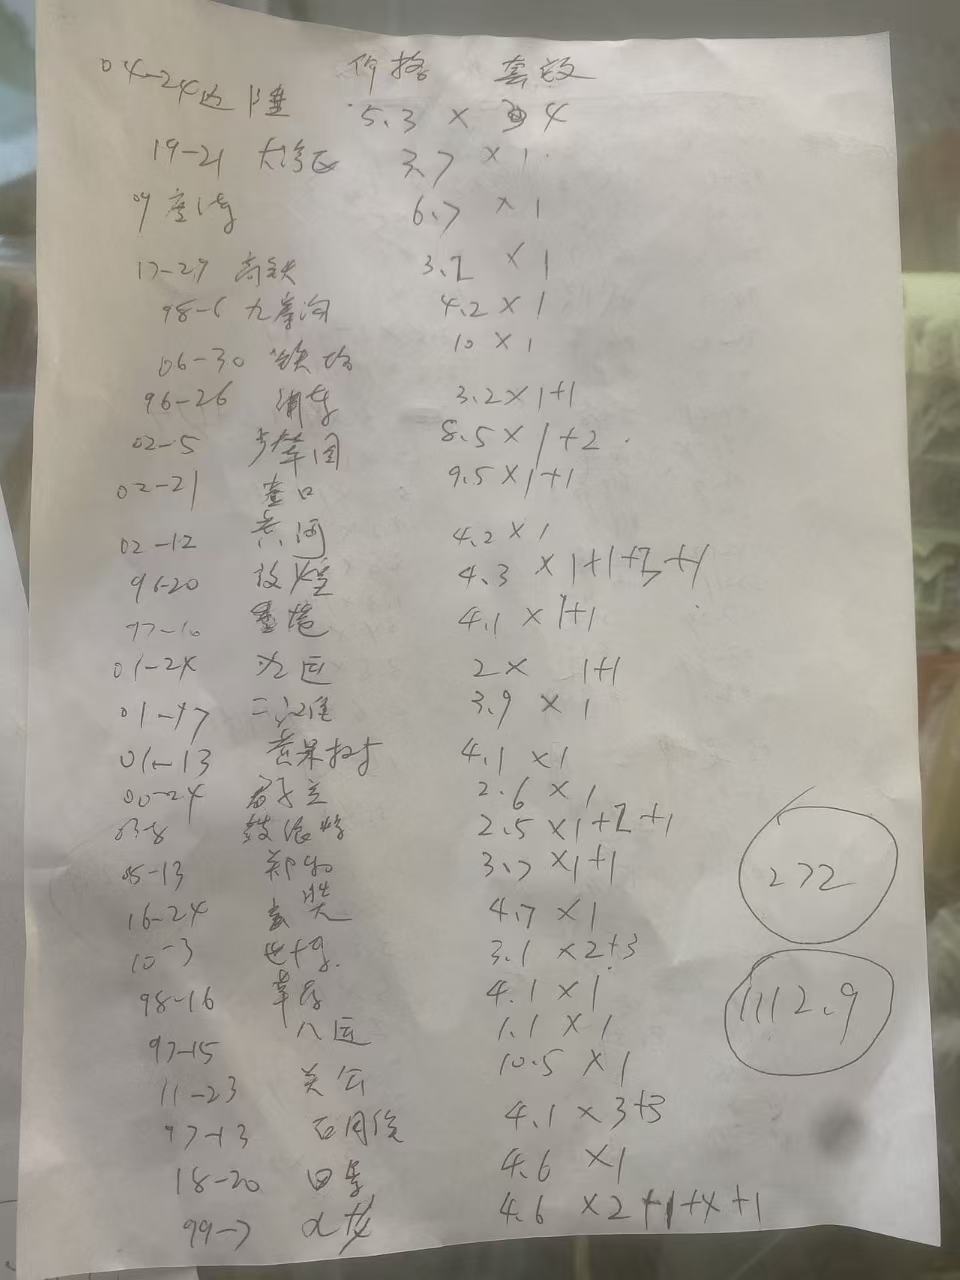 价格 套数
04-24 边陲 5.3 × 4
19-21 大湾区 3.7 × 1
6.7 × 1
17-29 高铁 3.2 × 1
98-6 九寨沟 4.2 × 1
06-30 铁路 10 × 1
96-26 浦东 3.2 × 1+1
02-5 步辇图 8.5 × 1+2
02-21 壶口 9.5 × 1+1
02-12 黄河 4.2 × 1
96-20 敦煌 4.3 × 1+1+ +1
97-10 4.1 × 1+1
01-24 九运 2 × 1+1
01- 二江淮 3.9 × 1
01-13 黄果树 4.1 × 1
00-24 君子兰 2.6 × 1
03-8 鼓浪屿 2.5 × 1+2+1
05-13 郑和 3.7 × 1+1
16-24 玄奘 4.7 × 1
10-3 世博 3.1 × 2+3
98-16 4.1 × 1
97-15 八运 1.1 × 1
11-23 关公 10.5 × 1
97-13 4.1 × 3+3
18-20 四景 4.6 × 1
99-7 4.6 × 2+1+ +1
272
1112.9